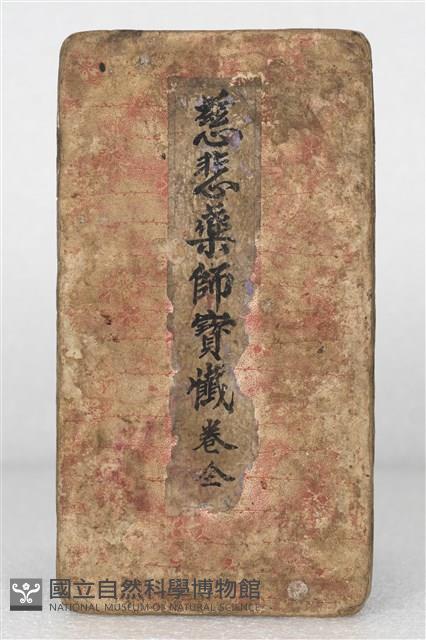 慈悲藥師寶懺卷全
國立自然科學博物館
NATIONAL MUSEUM OF NATURAL SCIENCE